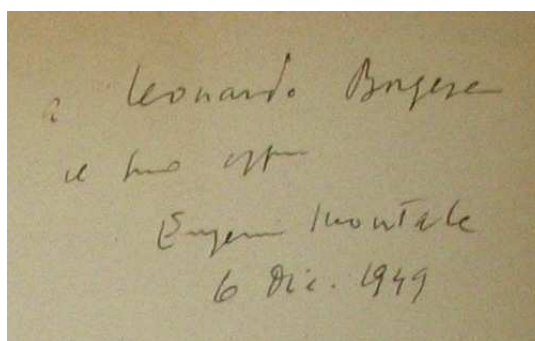 a Leonardo Borgese
il suo
Eugenio Montale
6 Dic. 1949